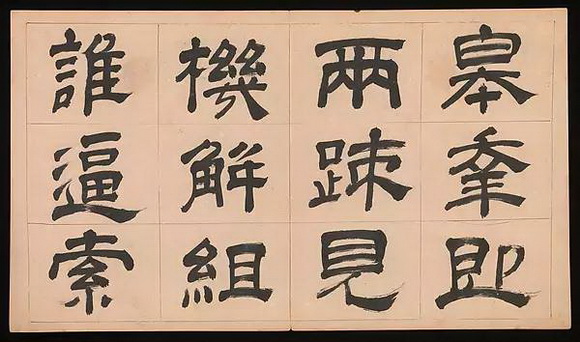 皋幸即
兩踈見
機觧組
誰逼索